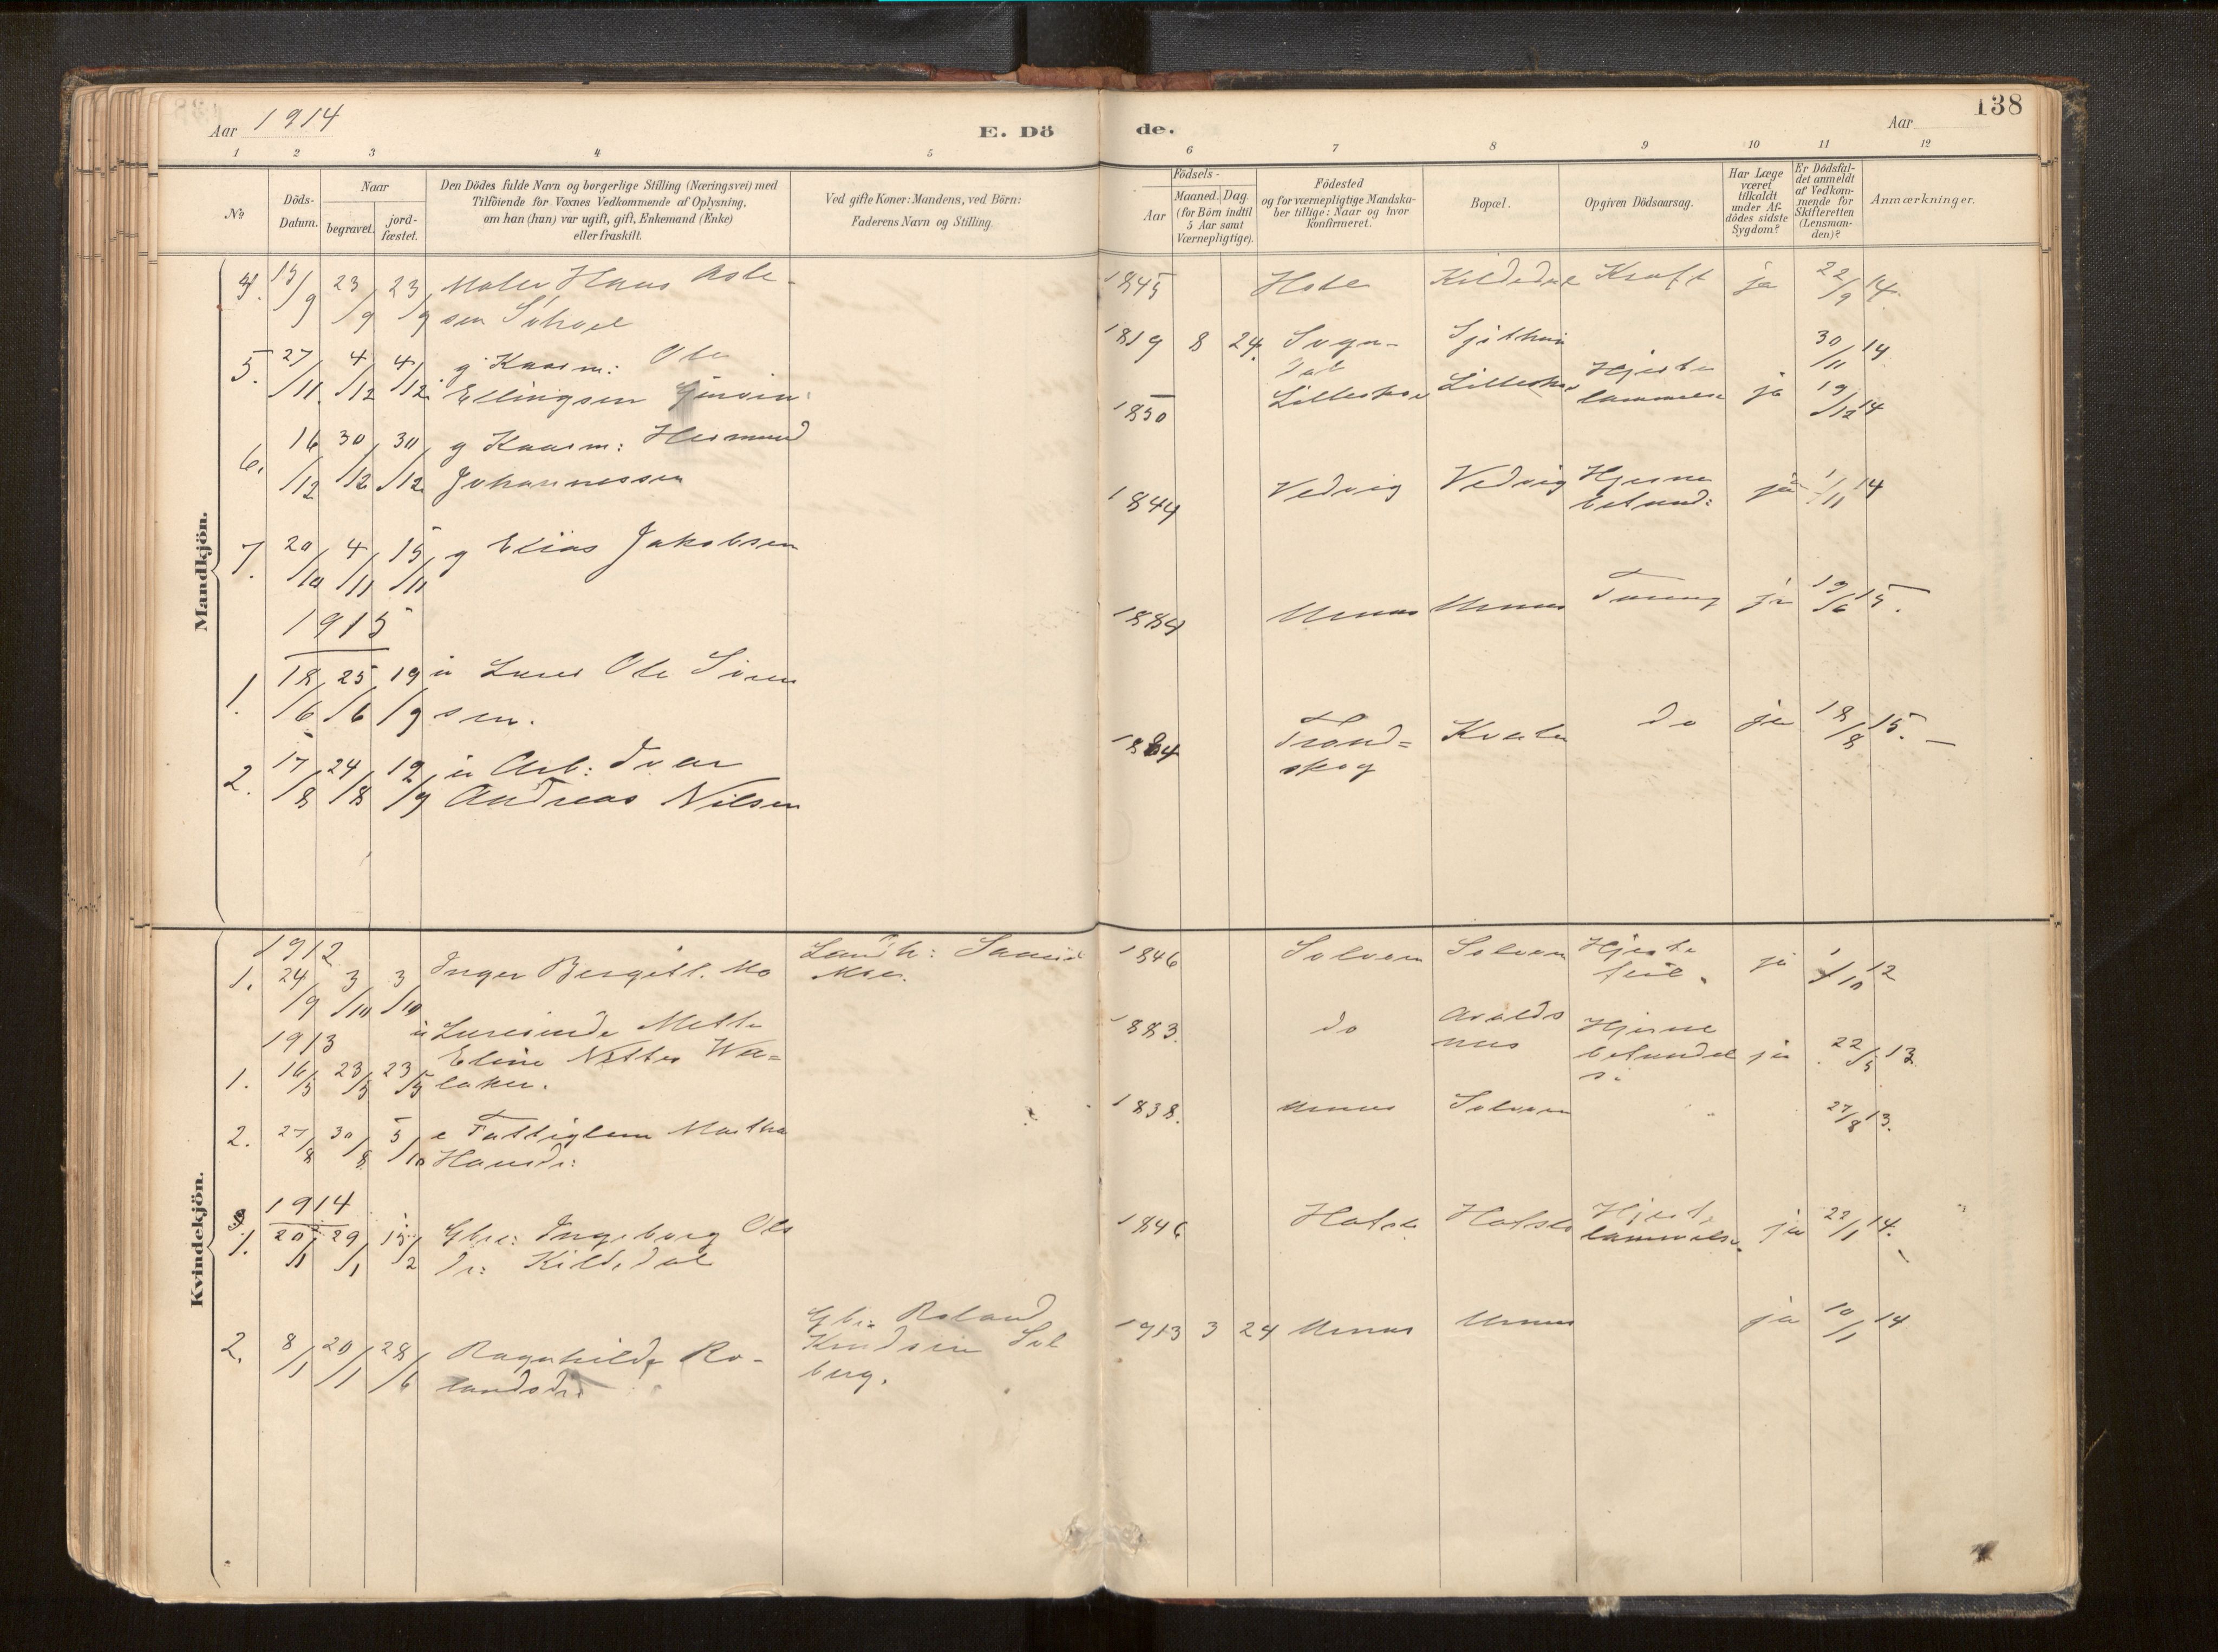 138
Aar 1914
E. Dö
de.
Aar
1 2 3 4 5 6 7 8 9 10 11 12
No
Döds-
Datum.
Naar
begravet.
jord-
fæstet.
Den Dödes fulde Navn og borgerlige Stilling (Næringsvei) med
Tilföiende for Voxnes Vedkommende af Oplysning,
om han (hun) var ugift, gift, Enkemand (Enke)
eller fraskilt.
Ved gifte Koner: Mandens, ved Börn:
Faderens Navn og Stilling.
Födsels-
Aar
Maaned. Dag.
(for Börn indtil
5 Aar samt
Værnepligtige).
Födested
og for værnepligtige Mandska-
ber tillige: Naar og hvor
konfirmeret.
Bopæl.
Opgiven Dödsaarsag.
Har Læge
været
tilkaldt
under Af-
dödes sidste
Sygdom?
Er Dödsfal-
det anmeldt
af Vedkom-
mende for
Skifteretten
(Lensman-
den)?
Anmærkninger.
Mandkjön.
4. 15/9 23/9 23/9 Maler Hans Asle-
sen 1845 Kraft ja 22/9 14.
5. 27/11 4/12 4/12 g Kaarm: Ole
Ellingsen 1819 8 24. Sogn-
dal 30/11 14
6. 16/12 30/12 30/12 g Kaarm: Hermund
Johannessen 1850 Hjerte
lammelse ja 19/12 14
7. 20/10 4/11 15/11 g Elias Jakobsen 1844 Vedvig Vedvig Hjerne
betænd: ja 1/11 14
1915
1. 18/6 25/6 19/9 u Lærer Ole Simen
sen. 1884 Urnes Urnes Tæring ja 19/6 15.
2. 17/8 24/8 12/9 u Arb: Ivar
Andreas Nilsen Trond=
skog Kvalen do ja 18/8 15.
Kvindekjön.
1912
1. 24/9 3/10 3/10 Inger Bergitt. Mo Landh:
Moe. 1846 Solvorn Solvorn Hjerte
feil. ja 1/10 12
1913
1. 16/5 23/5 23/5 u Lærerinde Mette
Eline Wa=
laker. 1883. do Avalds
nes Hjerne
betændel
s. ja 22/5 13
2. 27/8 30/8 5/10 e Fattiglem Martha
Hansdr: 1838. Urnes Solvorn 27/8 13.
1914
1. 20/1 29/1 15/2 Gbr: Ingeborg Ols
dr: Kildedal 1846 Hjerte
lammelse. ja 22/1 14.
2. 8/1 20/1 28/6 Ragnhilde Ro-
landsdr. Gbr: Roland
Knudsen Sol
berg. 1913 3 24 Urnes Urnes ja 10/1 14